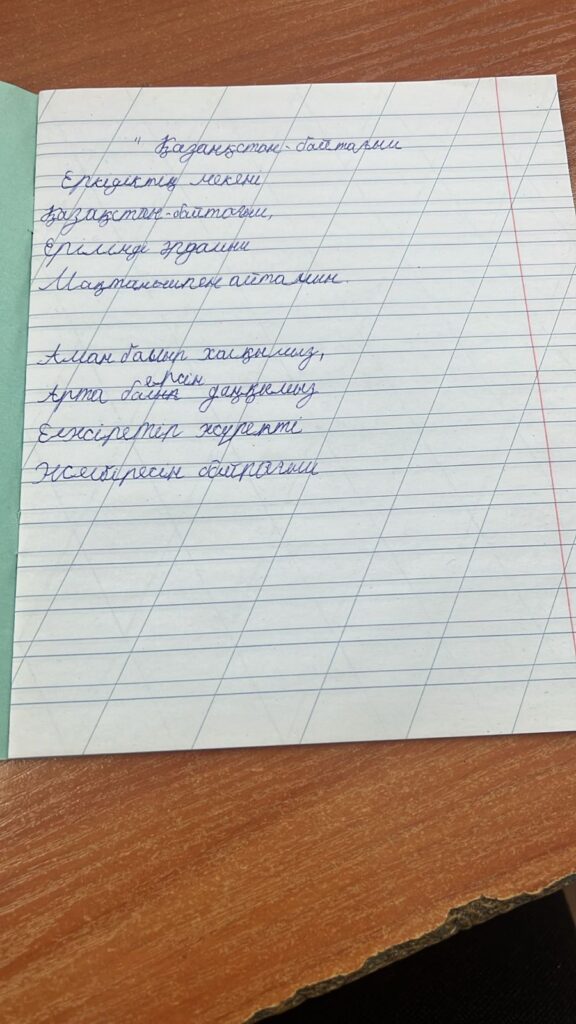 " Қазанқстан-байтағым
Еркіндіктің мекені
Қазақстан-байтағым,
Ерлінді әрдайым
Мақтанышпен айтамын.
Аман бауыр халқымыз,
Арта берсін даңқымыз
Елжіретер жүректі
Желбіресін байрағым